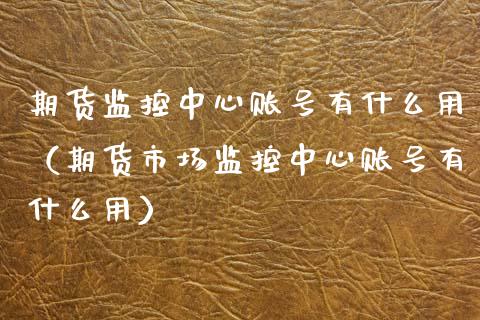 期货监控中心账号有什么用
（期货市场监控中心账号有
什么用）